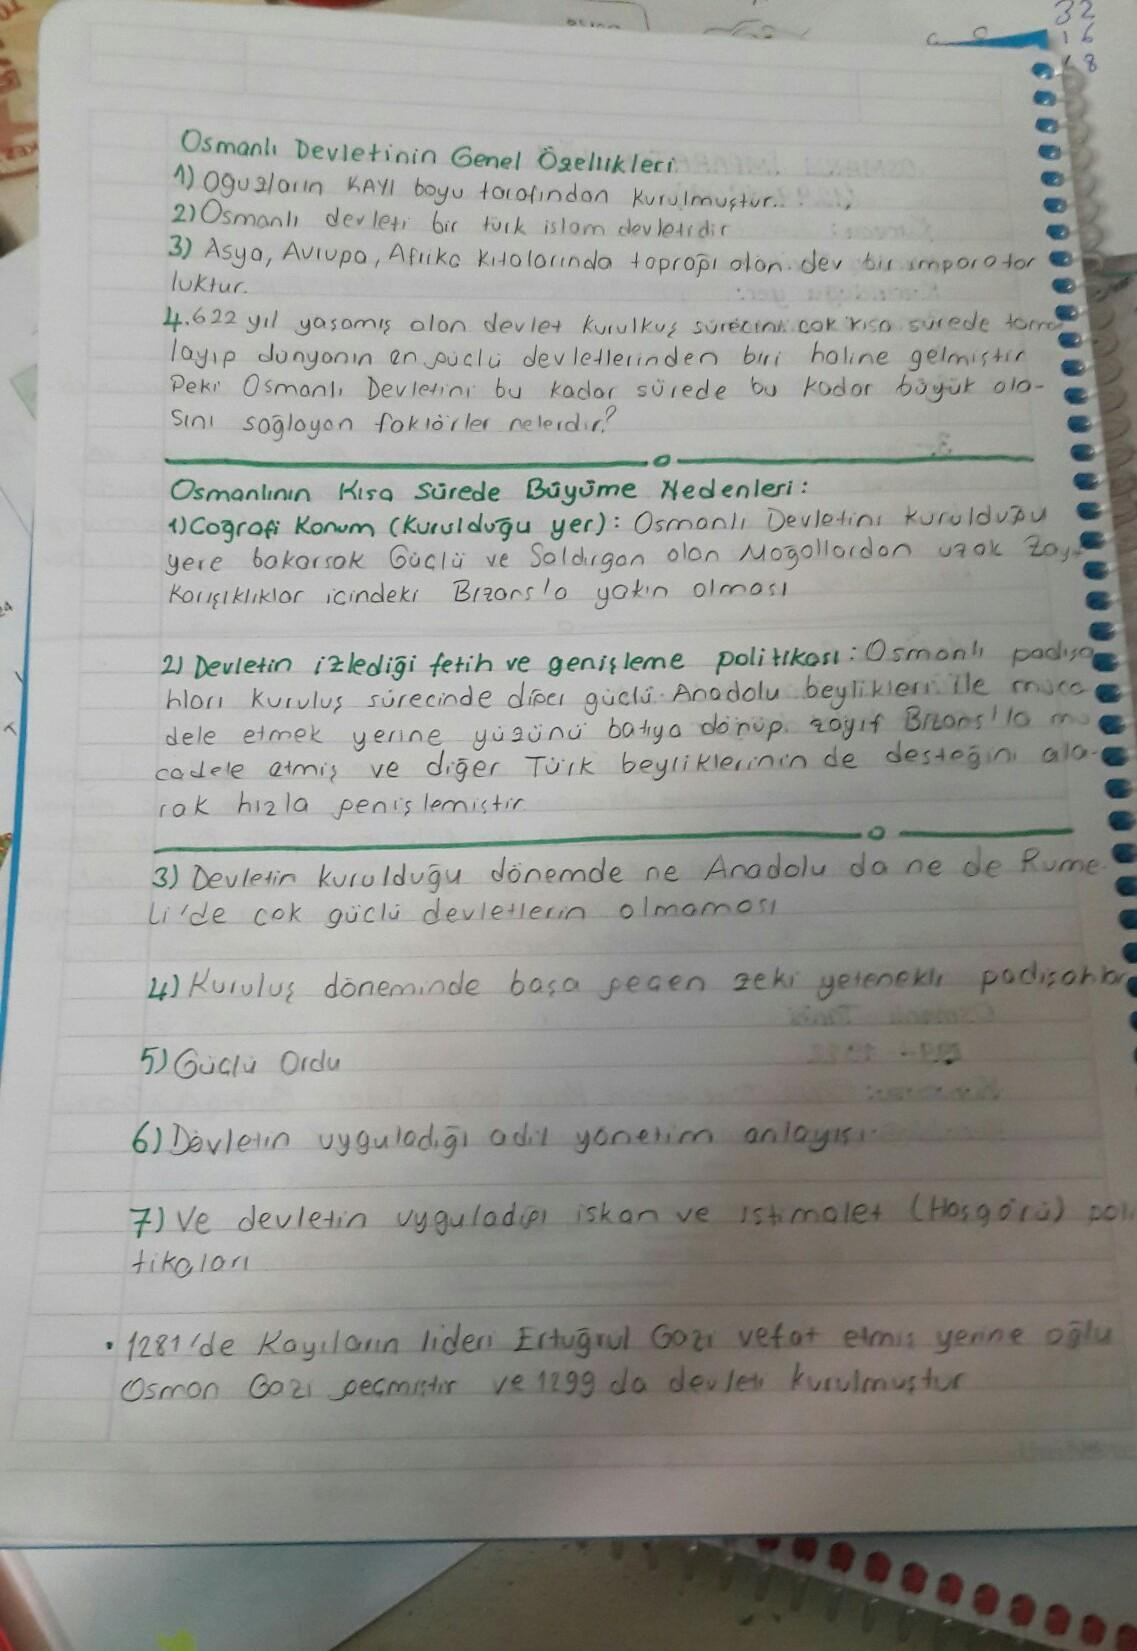 32
16
8
Osmanlı Devletinin Genel Özellikleri
1) Oğuzların KAYI boyu tarafından kurulmuştur.
2) Osmanlı devleti bir türk islam devletidir
3) Asya, Avrupa, Afrika kıtalarında toprağı olan dev bir imparator
luktur.
4.622 yıl yaşamış olan devlet kurulkuş sürecini çok kısa sürede tama
layıp dünyanın en güçlü devletlerinden biri haline gelmiştir
Peki Osmanlı Devletini bu kadar sürede bu kadar büyük ola-
sını sağlayan faktörler nelerdir?
Osmanlının Kısa Sürede Büyüme Nedenleri:
1) Coğrafi Konum (Kurulduğu yer): Osmanlı Devletini kurulduğu
yere bakarsak Güçlü ve Saldırgan olan Moğollardan uzak Zay
Karışıklıklar içindeki Bizans'a yakın olması
2) Devletin izlediği fetih ve genişleme politikası: Osmanlı padişa
hları kuruluş sürecinde diğer güçlü Anadolu beylikleri ile müca
dele etmek yerine yüzünü batıya dönüp zayıf Bizans'la mü
cadele etmiş ve diğer Türk beyliklerinin de desteğini ala-
rak hızla genişlemiştir
3) Devletin kurulduğu dönemde ne Anadolu da ne de Rume
li'de çok güçlü devletlerin olmaması
4) Kuruluş döneminde başa geçen zeki yetenekli padişahlar
5) Güçlü Ordu
6) Devletin uyguladığı adil yönetim anlayışı.
7) Ve devletin uyguladığı iskan ve istimalet (Hoşgörü) poli
tikaları
• 1281'de Kayıların lideri Ertuğrul Gazi vefat etmiş yerine oğlu
Osman Gazi geçmiştir ve 1299 da devleti kurulmuştur